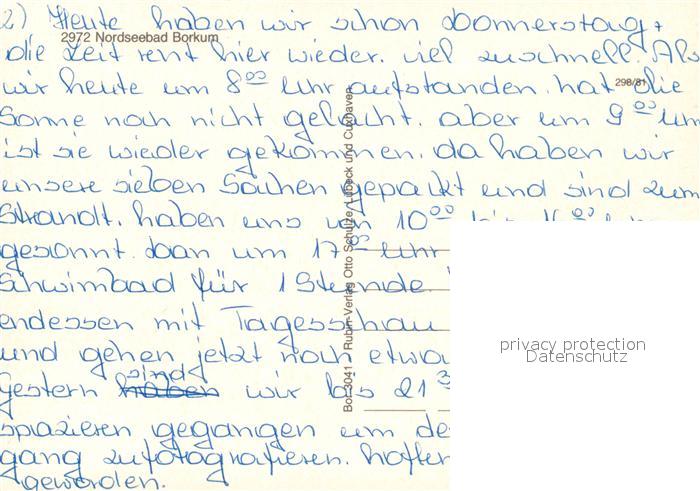 2) Heute haben wir schon Donnerstag +
2972 Nordseebad Borkum
die Zeit rent hier wieder. viel zuschnell. Als
298/81
wir heute um 8⁰⁰ Uhr aufstanden. hat die
Sonne noch nicht gelacht. aber um 9⁰⁰ Uhr
ist sie wieder gekommen. da haben wir
unsere sieben Sachen gepackt und sind zum
Strandt. haben uns von 10⁰⁰ bis
gesonnt. dan um 17⁰⁰ Uhr
Schwimbad für 1 Stunde.
endessen mit Tagesschau
und gehen jetzt noch etwa
sind
Gestern haben wir bis 21³
spazieren gegangen um de
gang zufotografieren. hoffen
geworden.
Bo. 3041 - Rubin-Verlag Otto Schulze, Lübeck und Cuxhaven
privacy protection
Datenschutz